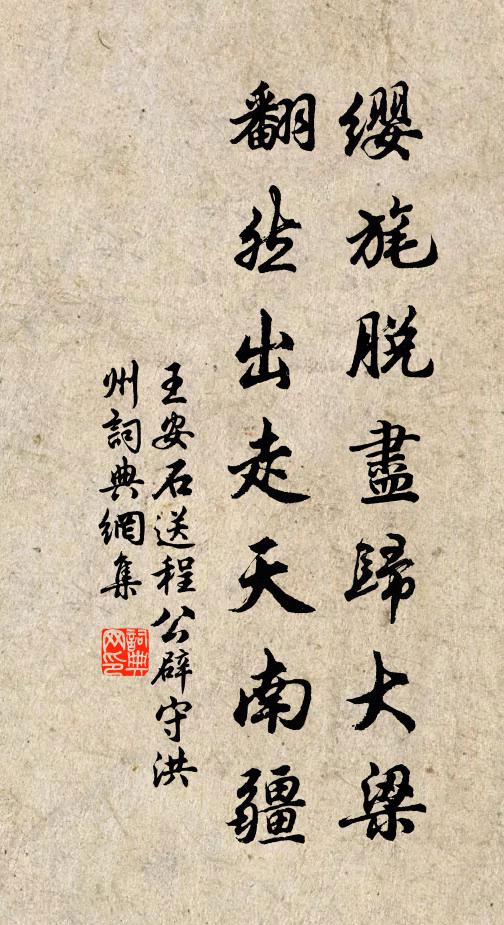 纓旄脱盡歸大梁
翻然出走天南疆
王安石送程公辟守洪
州詞典網集
詞典网印